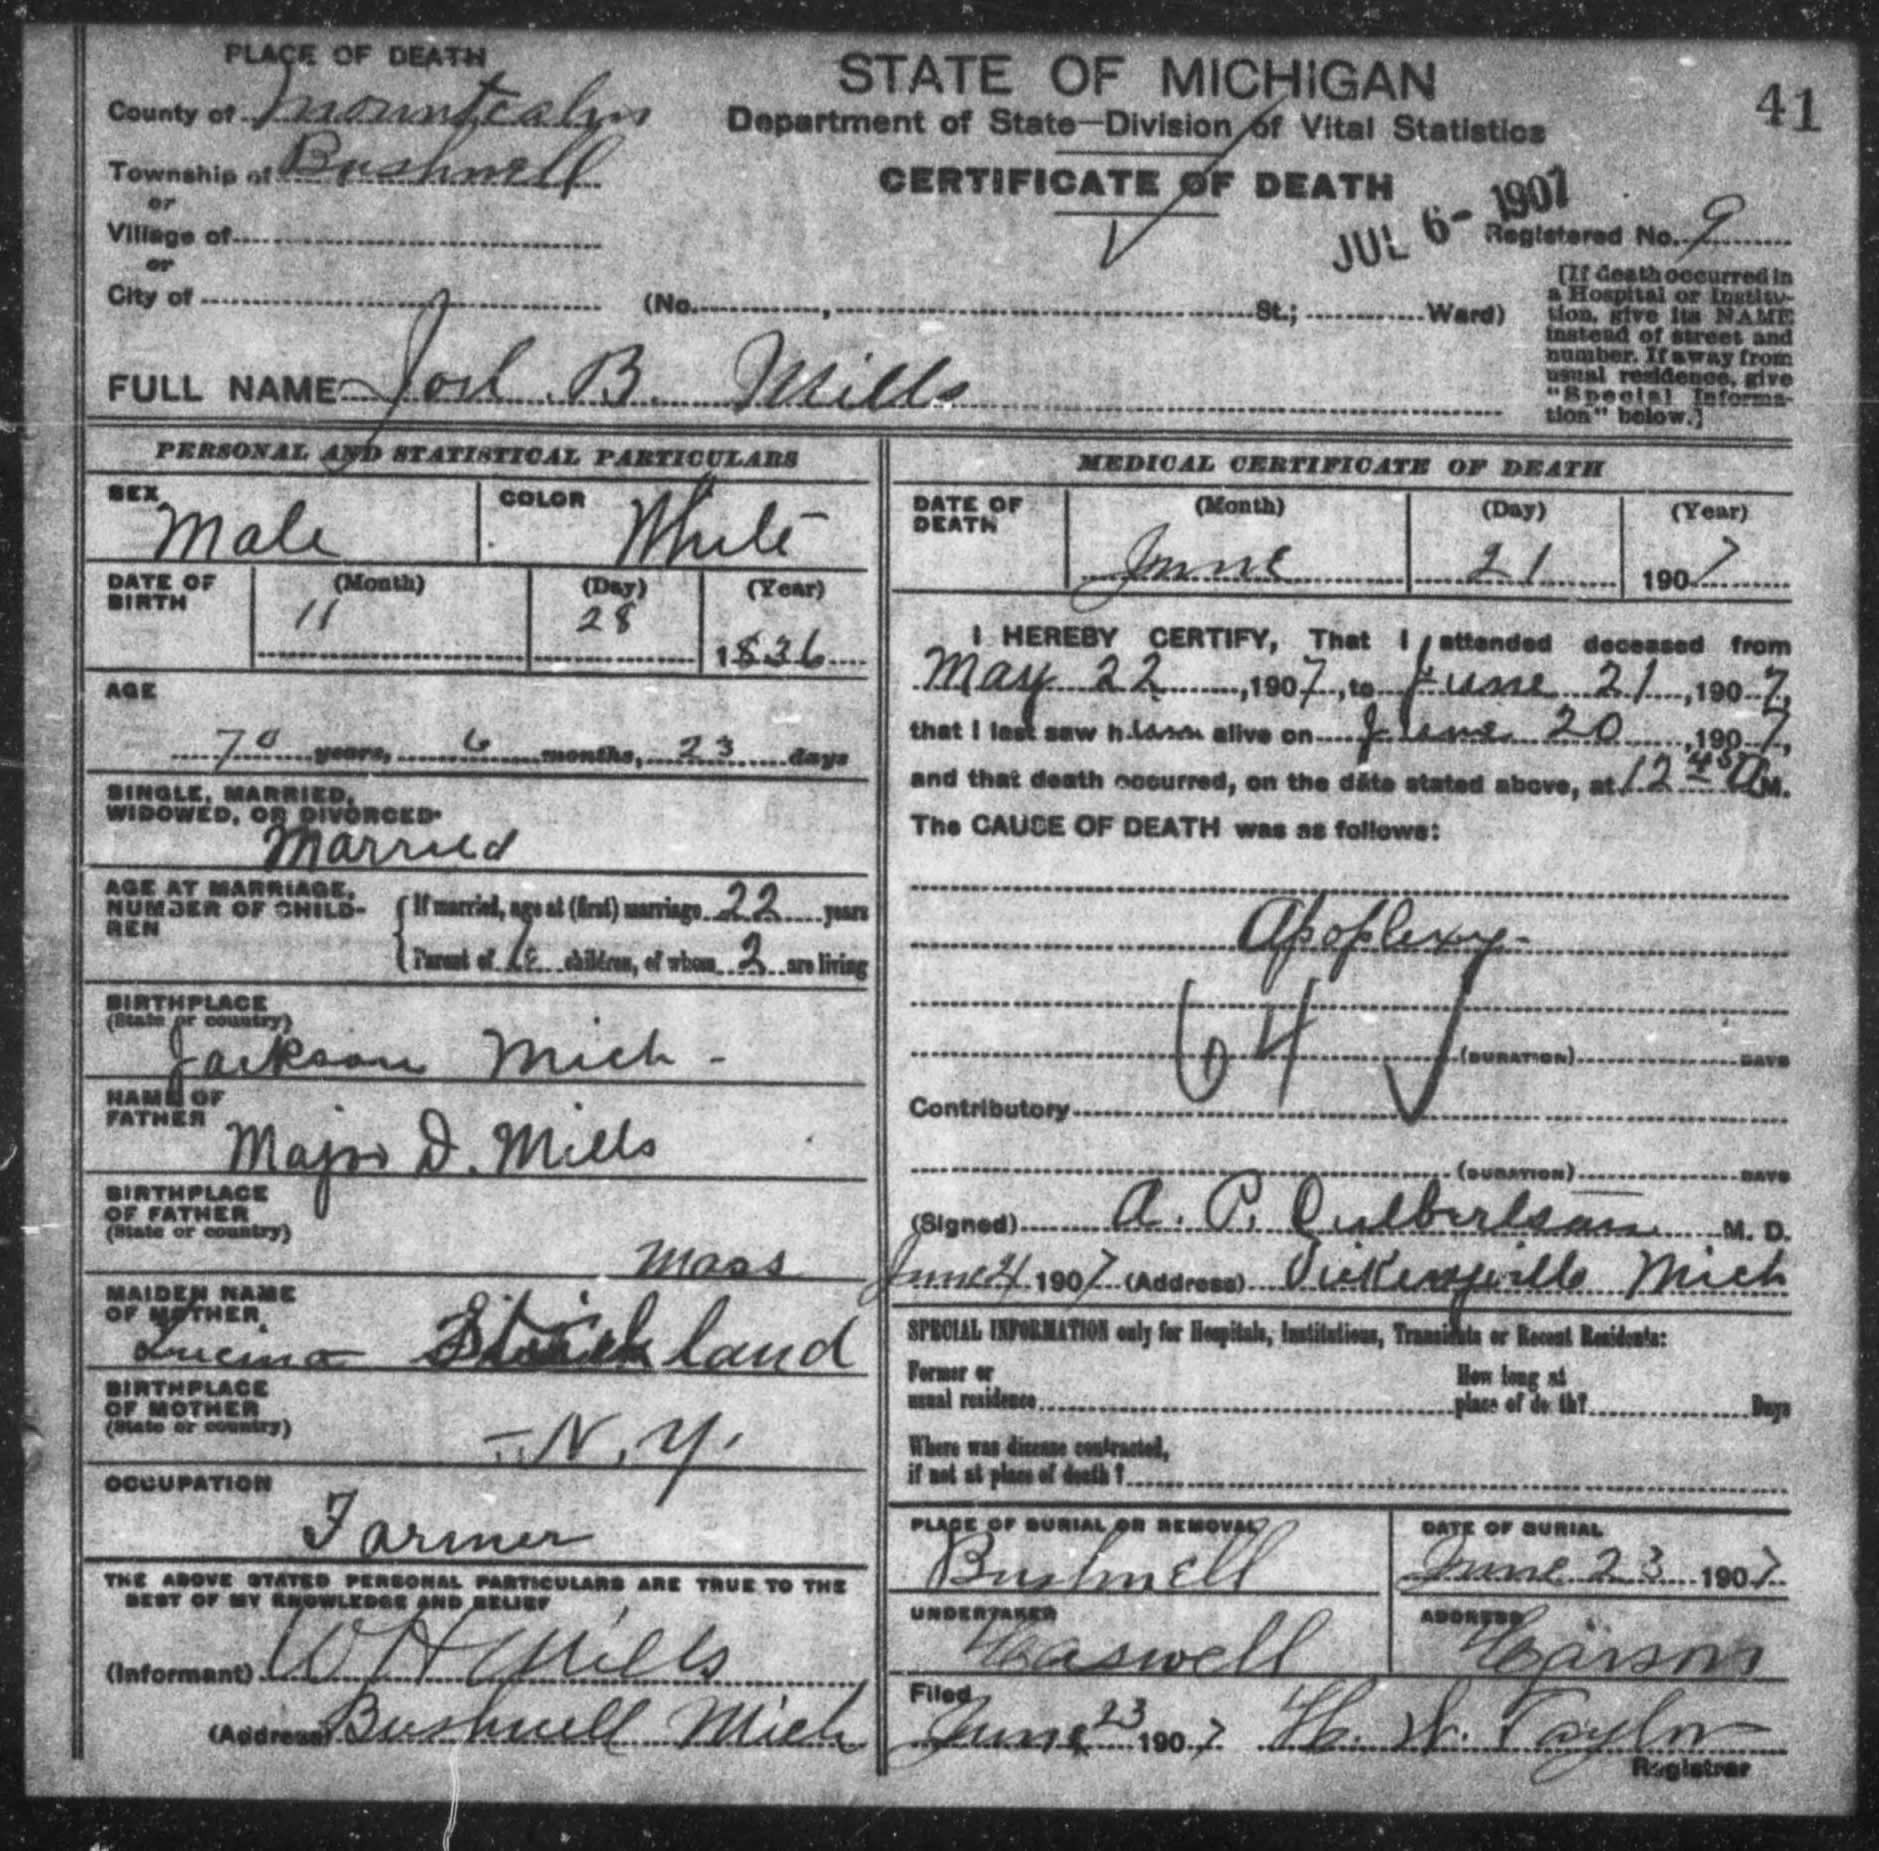 PLACE OF DEATH
County of Mountcalm
Township of Bushnell
or
Village of
or
City of
STATE OF MICHIGAN
Department of State—Division of Vital Statistics
CERTIFICATE OF DEATH
41
JUL 6- 1907
Registered No. 9
(No. , St.; Ward)
[If death occurred in
a Hospital or Institu-
tion, give its NAME
instead of street and
number. If away from
usual residence, give
"Special Informa-
tion" below.]
FULL NAME Joel B. Mills
PERSONAL AND STATISTICAL PARTICULARS
SEX Male
COLOR White
DATE OF BIRTH
(Month) (Day) (Year)
11 28 1836
AGE
70 years, 6 months, 23 days
SINGLE, MARRIED,
WIDOWED, OR DIVORCED
Married
AGE AT MARRIAGE,
NUMBER OF CHILD-
REN
If married, age at (first) marriage 22 years
Parent of children, of whom 2 are living
BIRTHPLACE
(State or country)
Jackson Mich -
NAME OF
FATHER
Major D. Mills
BIRTHPLACE
OF FATHER
(State or country)
Mass
MAIDEN NAME
OF MOTHER
Lucina Strickland
BIRTHPLACE
OF MOTHER
(State or country)
N. Y.
OCCUPATION
Farmer
THE ABOVE STATED PERSONAL PARTICULARS ARE TRUE TO THE
BEST OF MY KNOWLEDGE AND BELIEF
(Informant) W H Mills
(Address) Bushnell Mich
MEDICAL CERTIFICATE OF DEATH
DATE OF DEATH
(Month) (Day) (Year)
June 21 1907
I HEREBY CERTIFY, That I attended deceased from
May 22, 1907, to June 21, 1907,
that I last saw him alive on June 20, 1907,
and that death occurred, on the date stated above, at 12 45 A M.
The CAUSE OF DEATH was as follows:
Apoplexy-
64
(DURATION) DAYS
Contributory
(DURATION) DAYS
(Signed) A. P. Culbertson M. D.
June 21 1907 (Address) Vickeryville Mich
SPECIAL INFORMATION only for Hospitals, Institutions, Transients or Recent Residents:
Former or
usual residence
How long at
place of death? Days
Where was disease contracted,
if not at place of death?
PLACE OF BURIAL OR REMOVAL
Bushnell
DATE OF BURIAL
June 23 1907
UNDERTAKER
Caswell
ADDRESS
Carson
Filed
June 23 1907 H. W. Taylor
Registrar